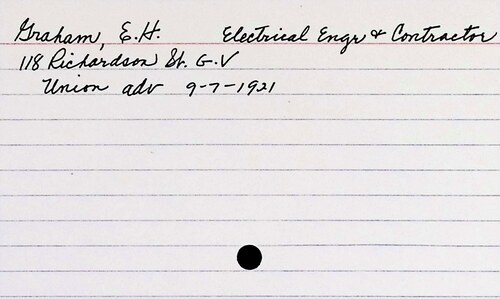 Graham, E.H. Electrical Engr & Contractor
118 Richardson St. G.V
Union adv 9-7-1921